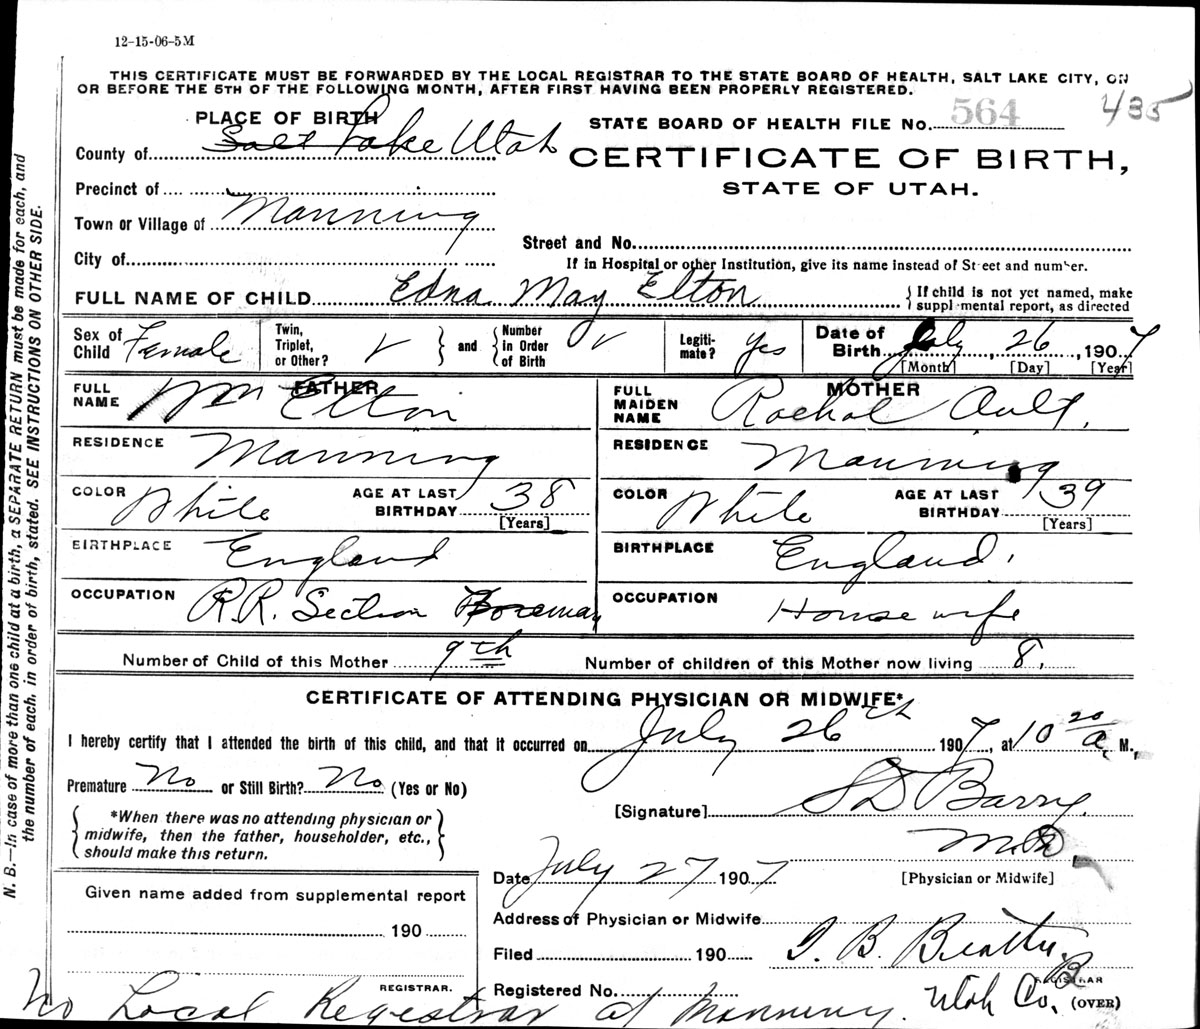 12-15-06-5M
THIS CERTIFICATE MUST BE FORWARDED BY THE LOCAL REGISTRAR TO THE STATE BOARD OF HEALTH, SALT LAKE CITY, ON
OR BEFORE THE 5TH OF THE FOLLOWING MONTH, AFTER FIRST HAVING BEEN PROPERLY REGISTERED.
PLACE OF BIRTH
STATE BOARD OF HEALTH FILE No. 564 435
County of Salt Lake Utah
CERTIFICATE OF BIRTH,
STATE OF UTAH.
Precinct of
Town or Village of Manning
Street and No.
City of
If in Hospital or other Institution, give its name instead of Street and number.
FULL NAME OF CHILD Edna May Elton { If child is not yet named, make
supplemental report, as directed
Sex of Child Female
Twin, Triplet, or Other? } and { Number in Order of Birth
Legitimate? yes
Date of Birth July, 26, 1907
[Month] [Day] [Year]
FATHER
FULL NAME Wm Elton
MOTHER
FULL MAIDEN NAME Rachal Ault.
RESIDENCE Manning
RESIDENCE Manning
COLOR White AGE AT LAST BIRTHDAY 38 [Years]
COLOR White AGE AT LAST BIRTHDAY 39 [Years]
BIRTHPLACE England
BIRTHPLACE England.
OCCUPATION R.R. Section Foreman
OCCUPATION House wife
Number of Child of this Mother 9th Number of children of this Mother now living 8.
CERTIFICATE OF ATTENDING PHYSICIAN OR MIDWIFE*
I hereby certify that I attended the birth of this child, and that it occurred on July 26th 1907, at 10 20 a. M.,
Premature No or Still Birth? No (Yes or No)
[Signature] Barry
M.D.
[Physician or Midwife]
{ *When there was no attending physician or
midwife, then the father, householder, etc.,
should make this return. }
Date July 27 1907
Given name added from supplemental report
190
REGISTRAR.
Address of Physician or Midwife
Filed 190 B. Beatty
REGISTRAR
Registered No. Utah Co. (OVER)
No Local Registrar at Manning.
N. B.—In case of more than one child at a birth, a SEPARATE RETURN must be made for each, and
the number of each, in order of birth, stated. SEE INSTRUCTIONS ON OTHER SIDE.